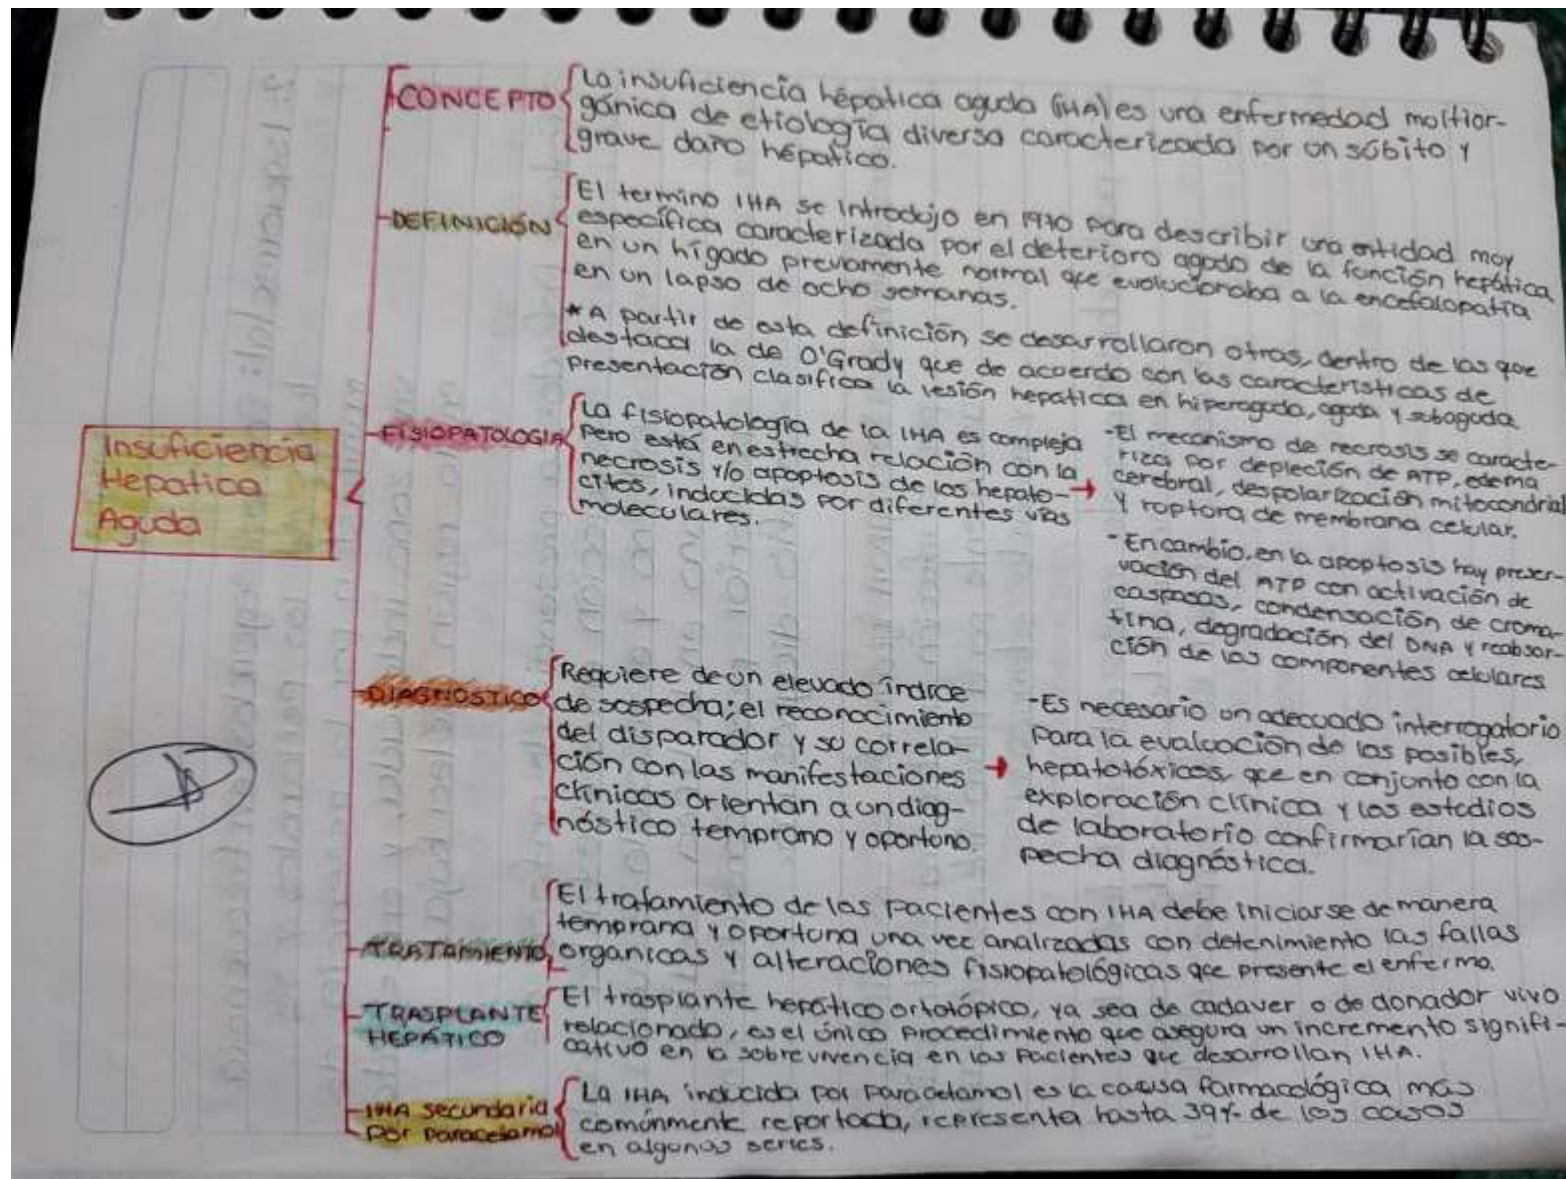 Insuficiencia
Hepatica
Aguda
CONCEPTO
La insuficiencia hépatica aguda (IHA) es una enfermedad moltior-
gánica de etiología diversa caracterizada por un súbito y
grave daño hépatico.
DEFINICIÓN
El termino IHA se introdujo en 1970 para describir una entidad muy
específica caracterizada por el deterioro agudo de la función hepática
en un hígado previamente normal que evolucionaba a la encefalopatía
en un lapso de ocho semanas.
*A partir de esta definición se desarrollaron otras, dentro de las que
destaca la de O'Grady que de acuerdo con las características de
presentación clasifica la lesión hepatica en hiperaguda, aguda y subaguda.
FISIOPATOLOGIA
La fisiopatología de la IHA es compleja
pero está en estrecha relación con la
necrosis y/o apoptosis de los hepato-
citos, inducidas por diferentes vías
moleculares.
→
-El mecanismo de necrosis se caracte-
riza por depleción de ATP, edema
cerebral, despolarización mitocondrial
y ruptura de membrana celular.
-En cambio, en la apoptosis hay preser-
vación del ATP con activación de
caspasas, condensación de croma-
tina, degradación del DNA y reabsor-
ción de los componentes celulares
DIAGNOSTICO
Requiere de un elevado índice
de sospecha; el reconocimiento
del disparador y su correla-
ción con las manifestaciones
clínicas orientan a un diag-
nóstico temprano y oportuno.
→
-Es necesario un adecuado interrogatorio
para la evaluación de los posibles,
hepatotóxicos, que en conjunto con la
exploración clínica y los estudios
de laboratorio confirmarían la sos-
pecha diagnóstica.
TRATAMIENTO
El tratamiento de los pacientes con IHA debe iniciarse de manera
temprana y oportuna una vez analizadas con detenimiento las fallas
organicas y alteraciones fisiopatológicas que presente el enfermo.
TRASPLANTE
HEPÁTICO
El trasplante hepático ortotópico, ya sea de cadaver o de donador vivo
relacionado, es el único procedimiento que asegura un incremento signifi-
cativo en la sobrevivencia en los pacientes que desarrollan IHA.
IHA secundaria
por paracetamol
La IHA inducida por paracetamol es la causa farmacológica más
comúnmente reportada, representa hasta 39% de los casos
en algunas series.